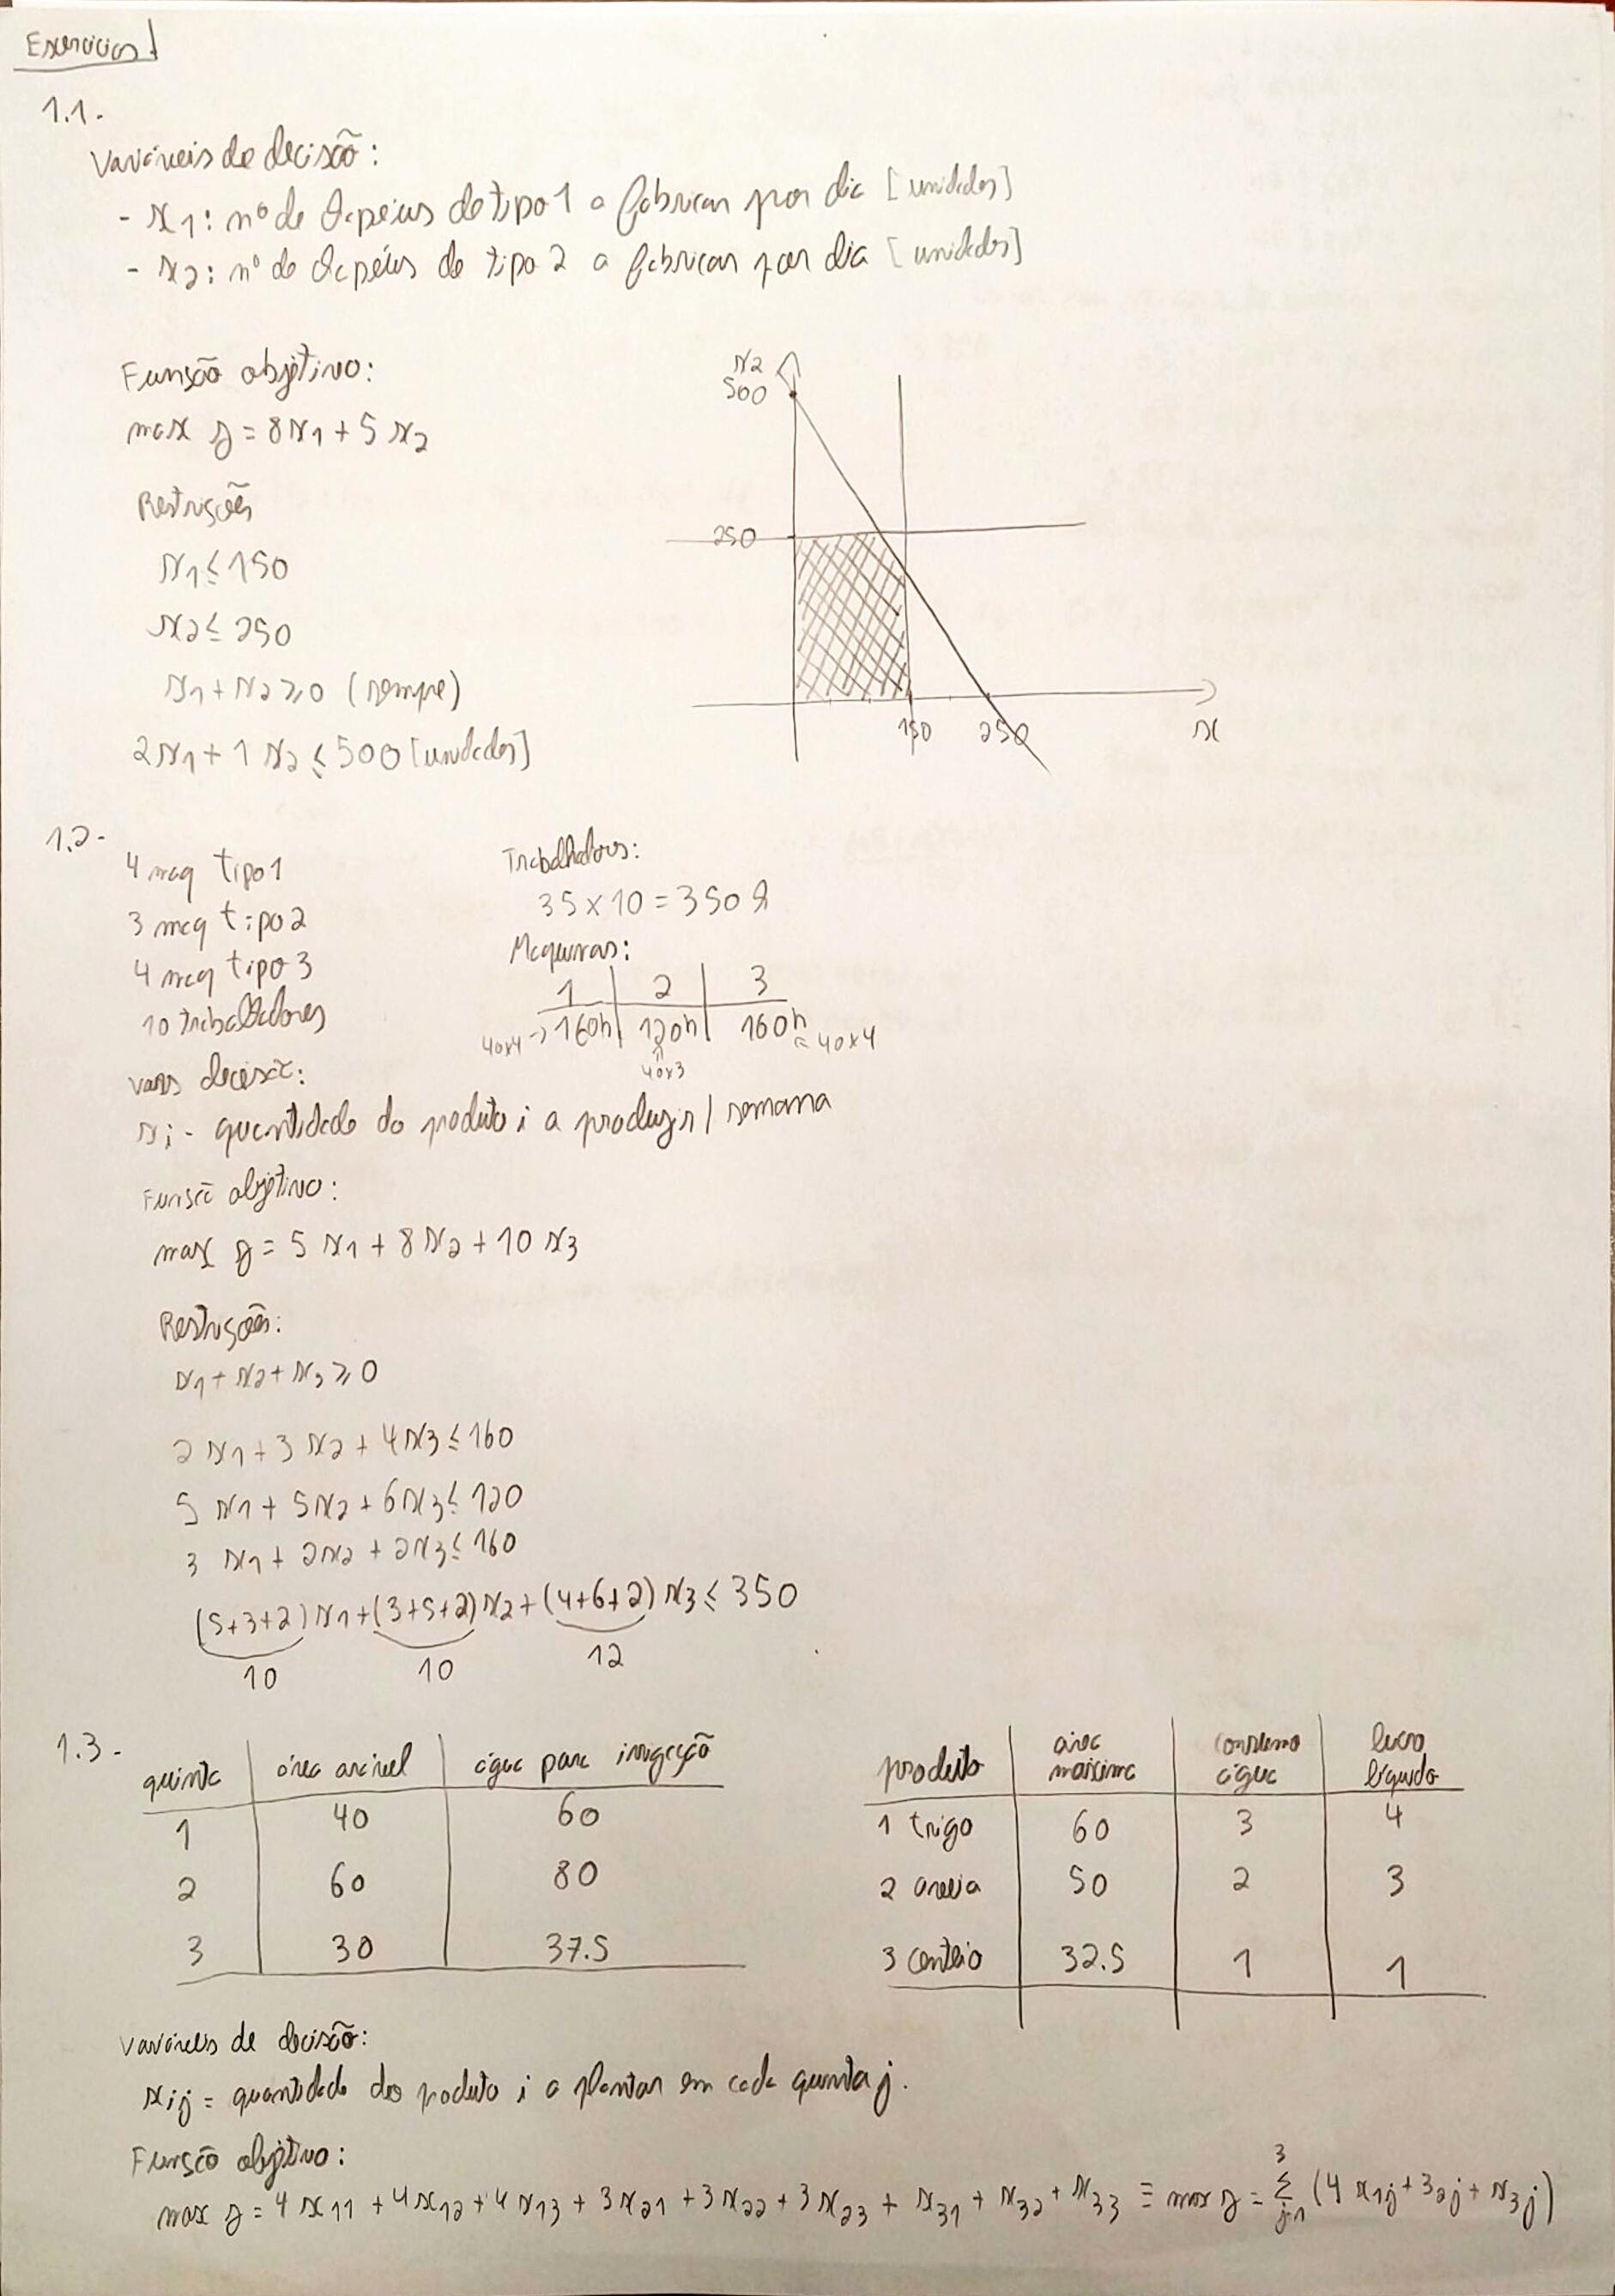 Exercícios 1
1.1.
Variáveis de decisão:
- x1: nº de chapéus de tipo 1 a fabricar por dia [unidades]
- x2: nº de chapéus de tipo 2 a fabricar por dia [unidades]
Função objetivo:
max z = 8x1 + 5x2
Restrições
x1 ≤ 150
x2 ≤ 250
x1 + x2 ≥ 0 (sempre)
2x1 + 1x2 ≤ 500 [unidades]
x2
500
250
150 250 x
1.2-
4 maq tipo 1
3 maq tipo 2
4 maq tipo 3
10 trabalhadores
Trabalhadores:
35 x 10 = 350 h
Maquinas:
1 2 3
40x4 → 160h 120h 160h = 40x4
40x3
vars decisão:
xi - quantidade do produto i a produzir / semana
Função objetivo:
max z = 5x1 + 8x2 + 10x3
Restrições:
x1 + x2 + x3 ≥ 0
2x1 + 3x2 + 4x3 ≤ 160
5x1 + 5x2 + 6x3 ≤ 120
3x1 + 2x2 + 2x3 ≤ 160
(5+3+2)x1 + (3+5+2)x2 + (4+6+2)x3 ≤ 350
10 10 12
1.3-
quinta área arável água para irrigação
1 40 60
2 60 80
3 30 37.5
produto área máxima consumo água lucro líquido
1 trigo 60 3 4
2 aveia 50 2 3
3 centeio 32.5 1 1
Variáveis de decisão:
xij = quantidade do produto i a plantar em cada quinta j.
Função objetivo:
max z = 4x11 + 4x12 + 4x13 + 3x21 + 3x22 + 3x23 + x31 + x32 + x33 ≡ max z = Σ_{j=1}^{3} (4x1j + 32j + x3j)